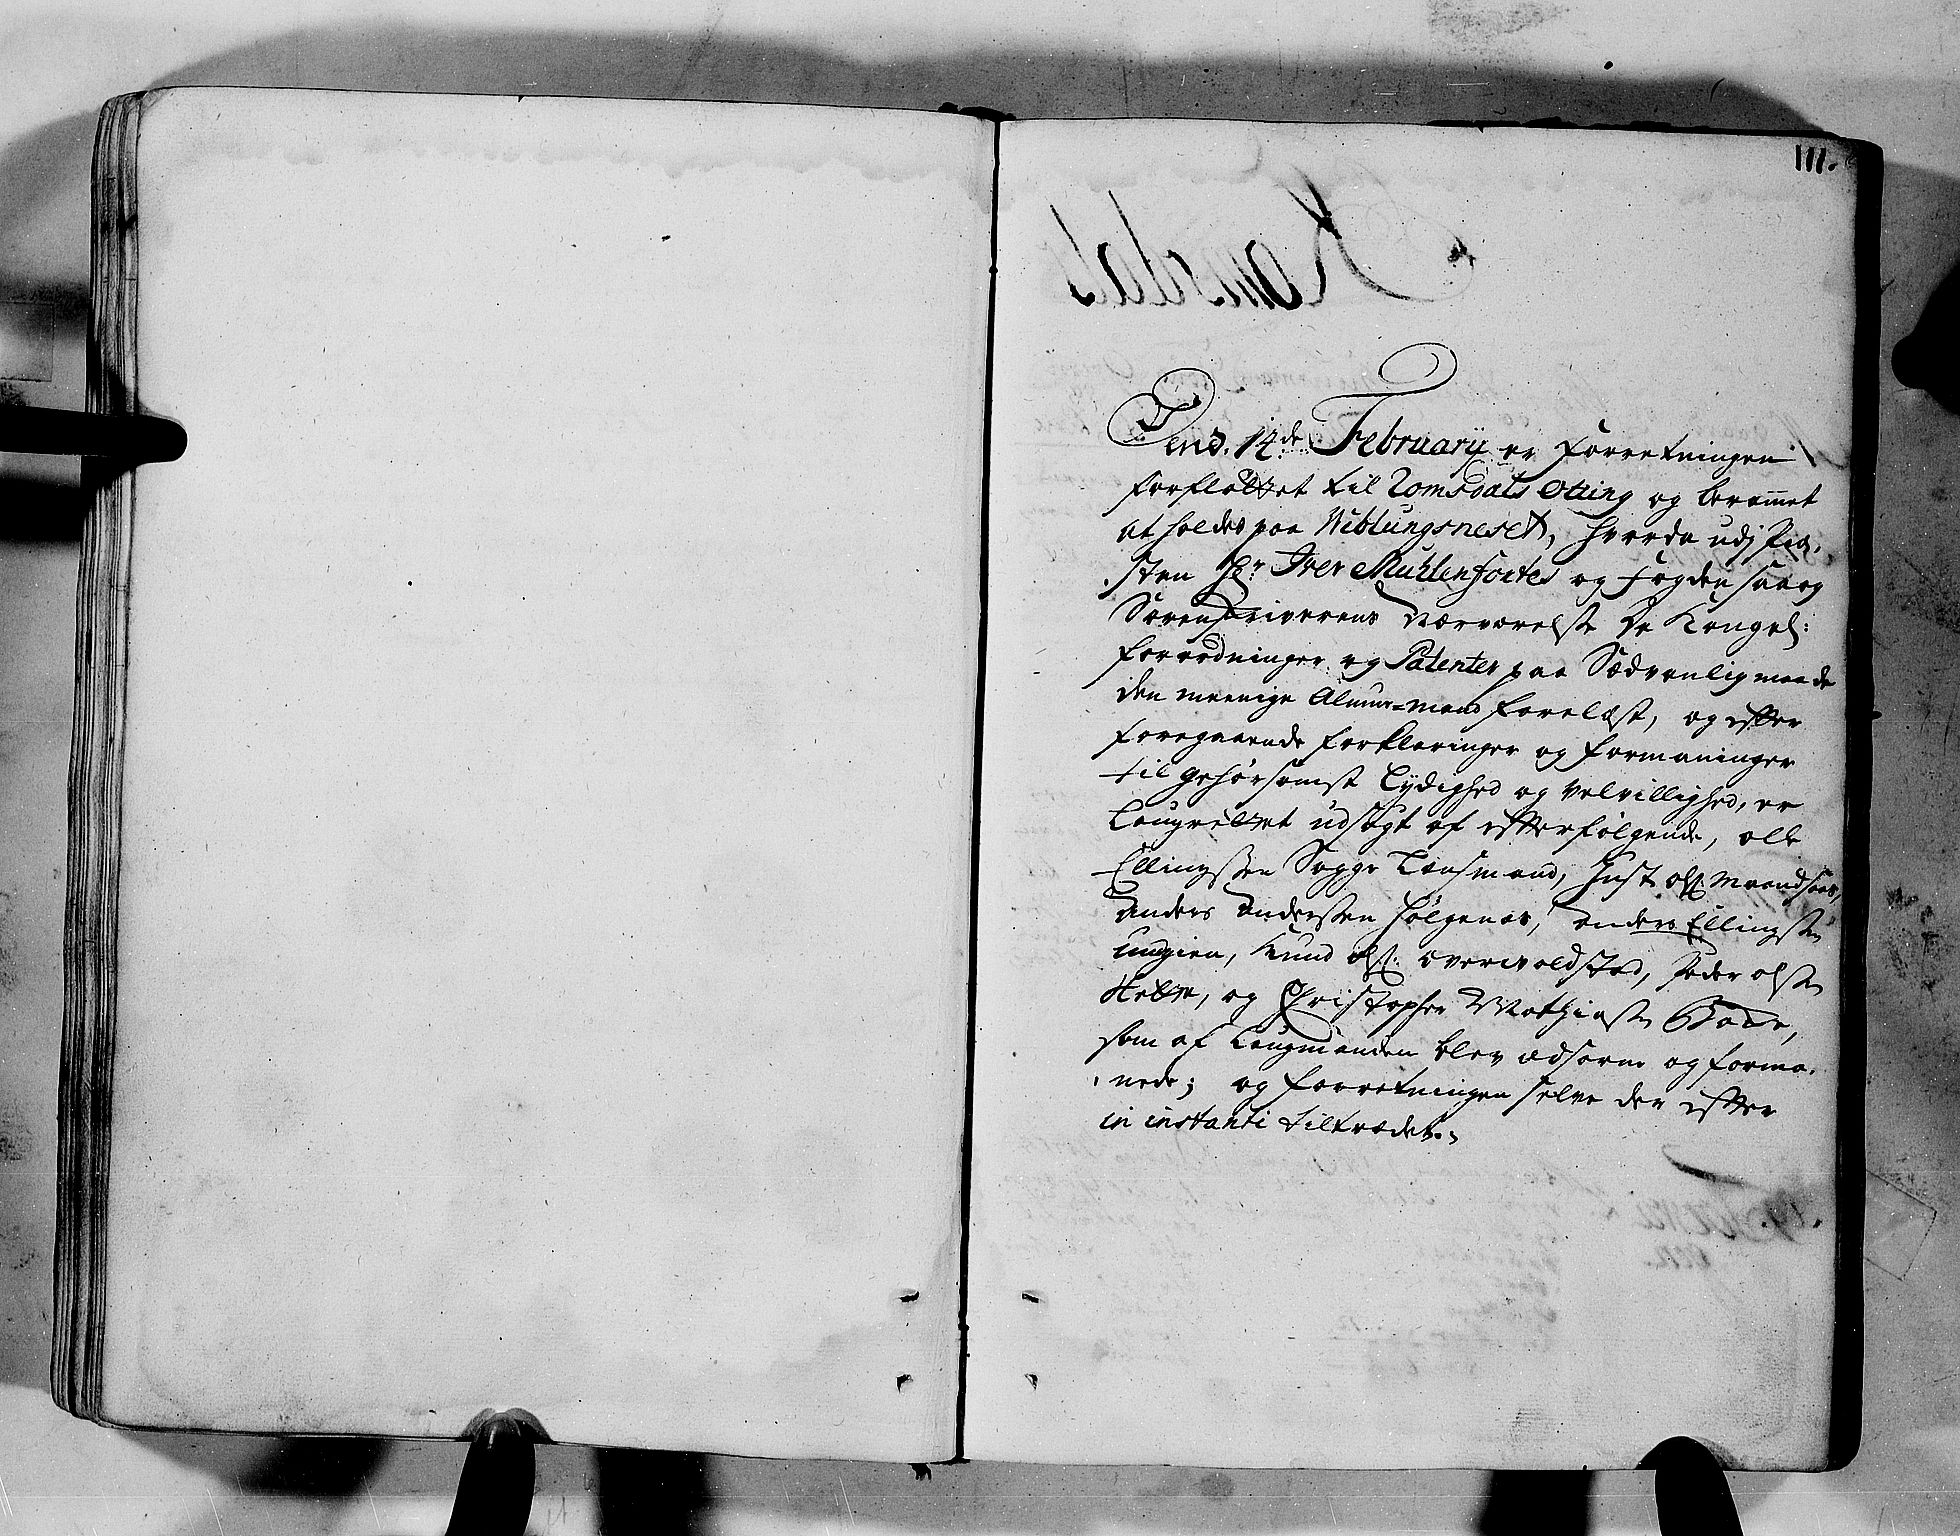 111.
Dend. 14de February er Forretningen
forfløttet til Romsdals Otting og beramet
at holdes paa Wiblungsneset, hvorda udj Præ-
sten Hr. Iver Muhlenfortes og Fogden saa og
Sorenskriverens Nærværelse De Kongel:
forordninger og Patenter paa Sædvanlig maade
den meenige Almue-mand forelæst, og efter
foregaaende forklaringer og formaninger
til gehørsomst Lydighed og velvillighed, er
Laugrettet udsagt af efterfølgende, olle
Ellingssen Sogge Lensmand, Just ols:
Anders Anderssen Hølgenes, Anders Ellingsen
Unhjem, Knud ols: overwoldstad, Peder olsen
og Christopher Mathiasen Bøe,
som af Laugmanden blev edsorne og forma-
nede; og forretningen selve der efter
in instanti tiltrædet.
Romsdals